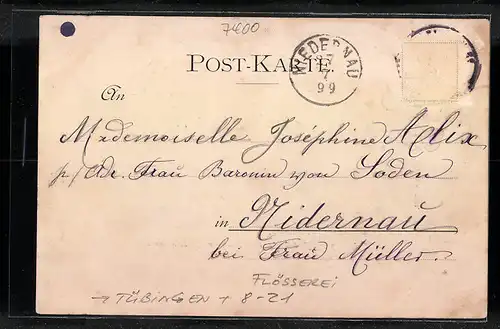 7400
POST-KARTE
NIEDERNAU
27
7
99
An
Mademoiselle Joséphine Alix
p/Adr. Frau Baronin von Soden
in Nidernau
bei Frau Müller.
FLÖSSEREI
→ TÜBINGEN + 8-21